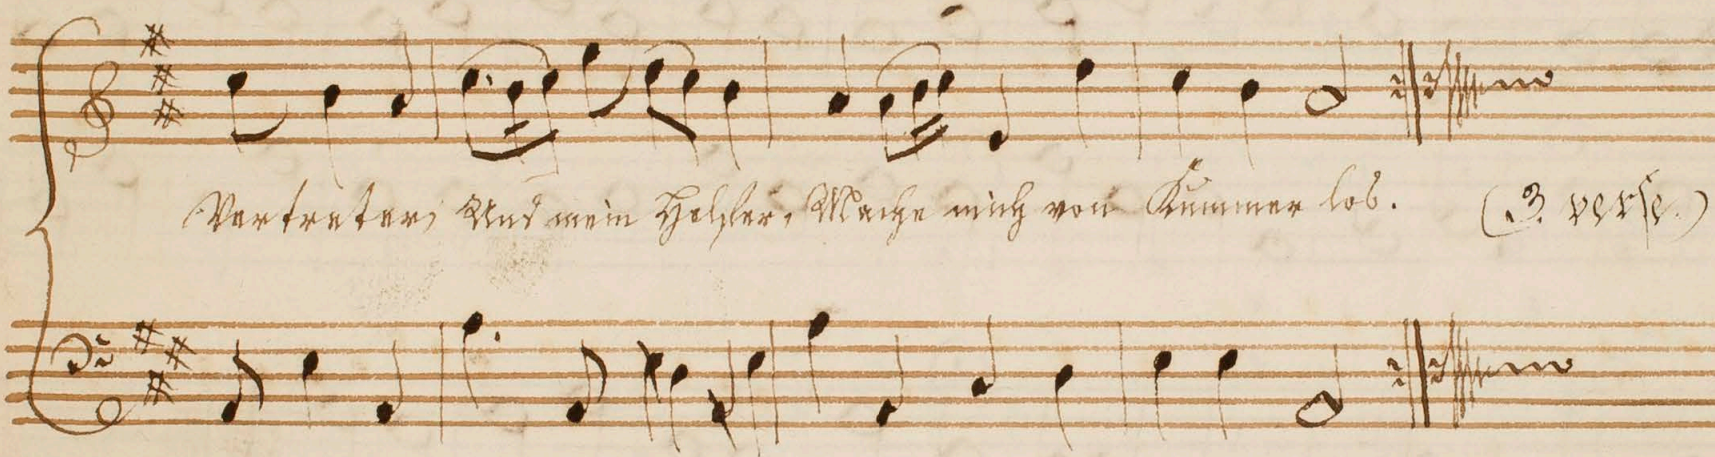 Vertreter, Und mein Helfer, Mache mich von Kummer los. (3. verse.)